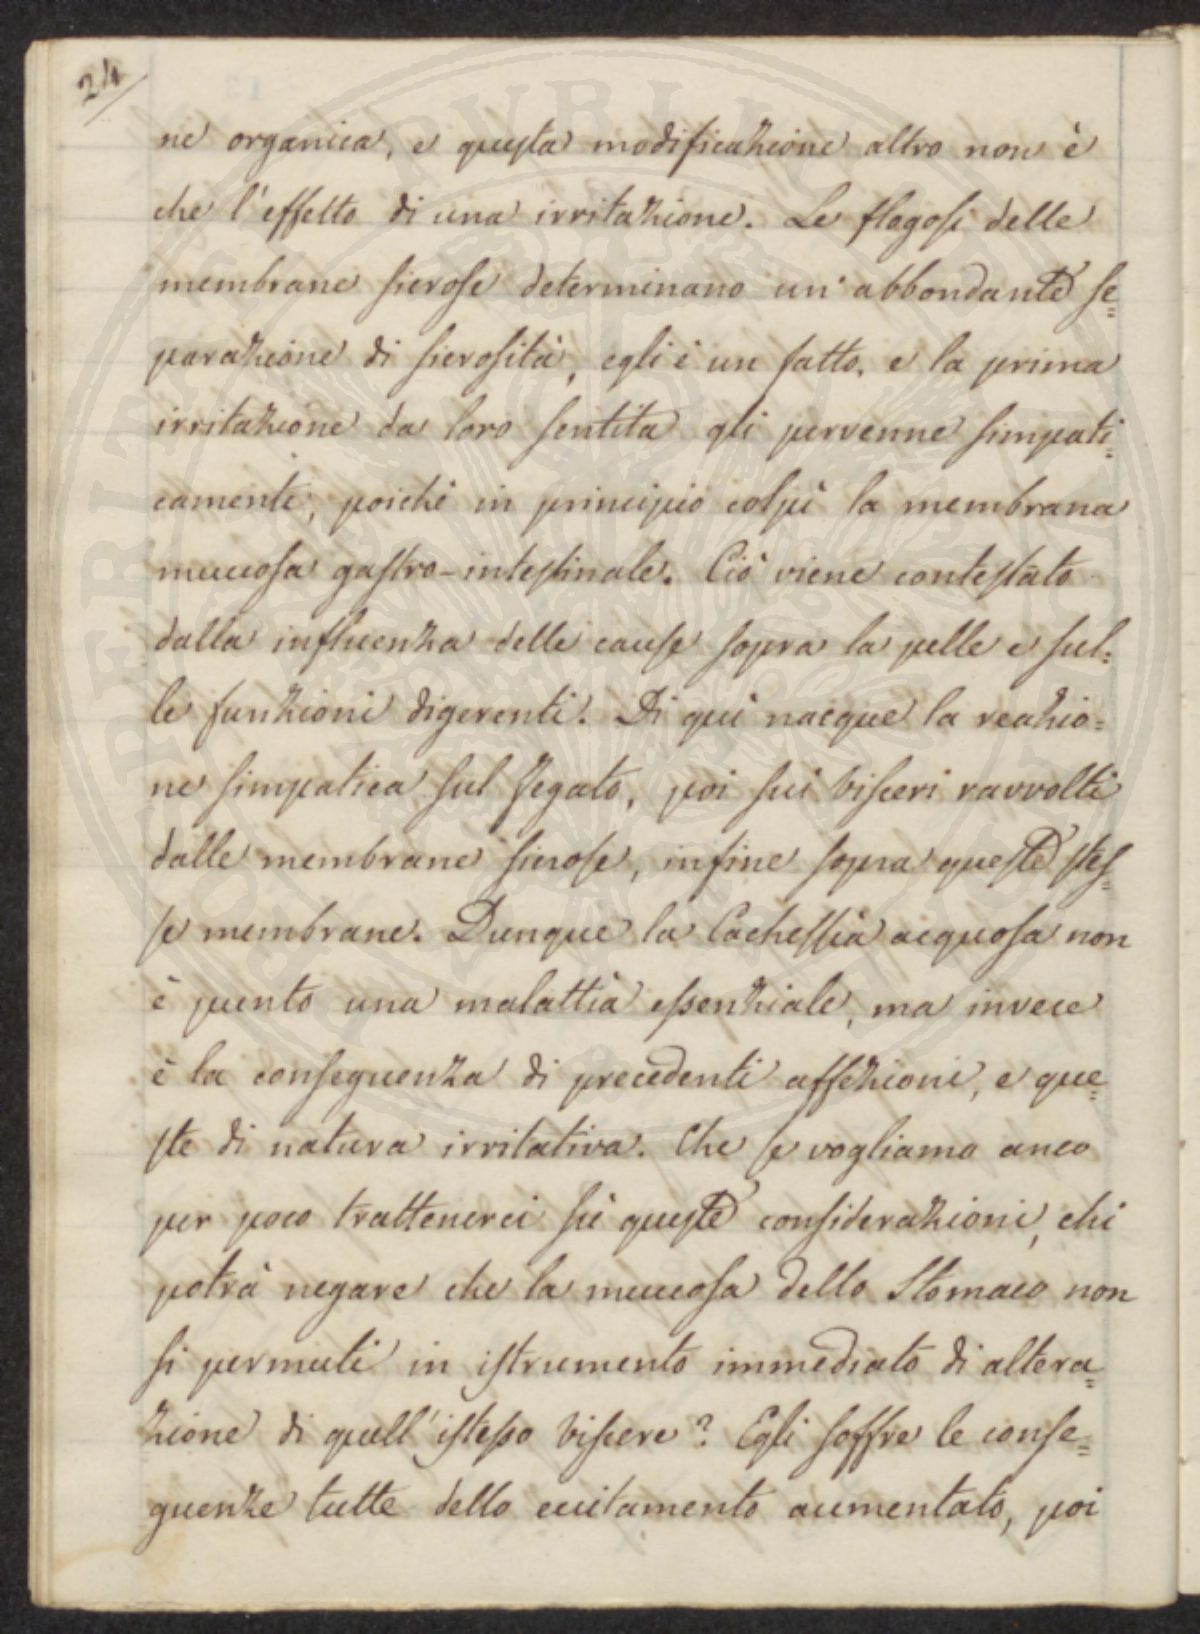 24
ne organica, e questa modificazione altro non è
che l'effetto di una irritazione. Le flogosi delle
membrane sierose determinano un' abbondante se=
parazione di sierosità, egli è un fatto, e la prima
irritazione da loro sentita gli pervenne simpati=
camente, poichè in principio colpì la membrana
muccosa gastro-intestinale. Ciò viene contestato
dalla influenza delle cause sopra la pelle e sul=
le funzioni digerenti. Di quì nacque la reazio=
ne simpatica sul Fegato, poi sui visceri ravvolti
dalle membrane sierose, infine sopra queste stes=
se membrane. Dunque la Cachessia acquosa non
è punto una malattia essenziale, ma invece
è la conseguenza di precedenti affezioni, e que=
ste di natura irritativa. Che se vogliamo anco
per poco trattenerci sù queste considerazioni, chi
potrà negare che la muccosa dello Stomaco non
si permuti in istrumento immediato di altera=
zione di quell'istesso viscere? Egli soffre le conse=
guenze tutte dello eccitamento aumentato, poi